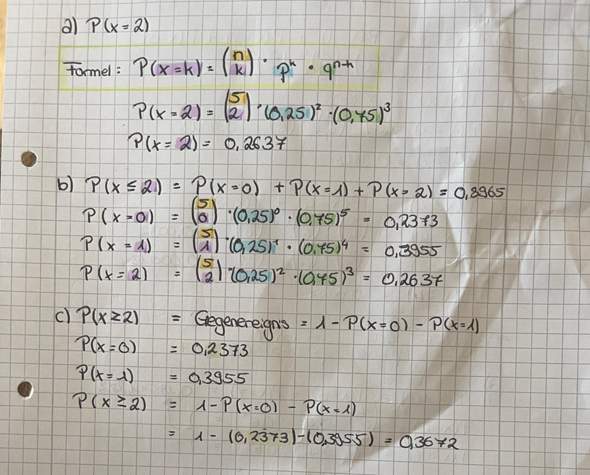 a) P(x=2)
Formel: P(x=k) = (n k) · pᵏ · qⁿ⁻ᵏ
P(x=2) = (5 2) · (0,25)² · (0,75)³
P(x=2) = 0,2637
b) P(x≤2) = P(x=0) + P(x=1) + P(x=2) = 0,8965
P(x=0) = (5 0) · (0,25)⁰ · (0,75)⁵ = 0,2373
P(x=1) = (5 1) · (0,25)¹ · (0,75)⁴ = 0,3955
P(x=2) = (5 2) · (0,25)² · (0,75)³ = 0,2637
c) P(x≥2) = Gegenereignis = 1 - P(x=0) - P(x=1)
P(x=0) = 0,2373
P(x=1) = 0,3955
P(x≥2) = 1 - P(x=0) - P(x=1)
= 1 - (0,2373) - (0,3955) = 0,3672